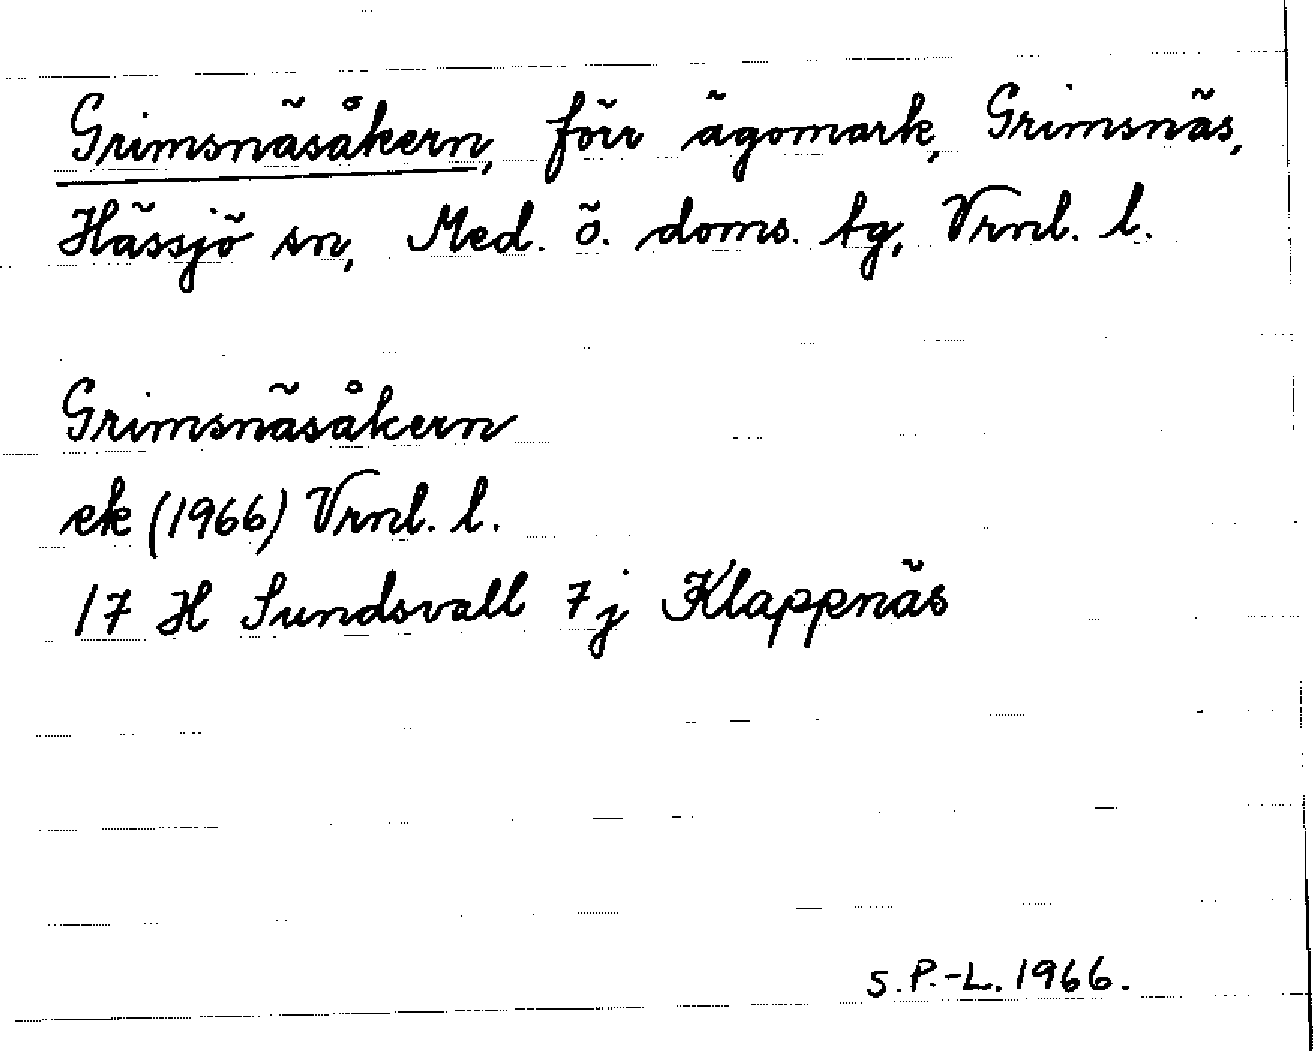 Grimsnäsåkern, förr ägomark, Grimsnäs,
Hässjö sn, Med. ö. doms. tg, Vrnl. l.
Grimsnäsåkern
ek (1966) Vrnl. l.
17 H Sundsvall 7j Klappnäs
S. P.-L. 1966.